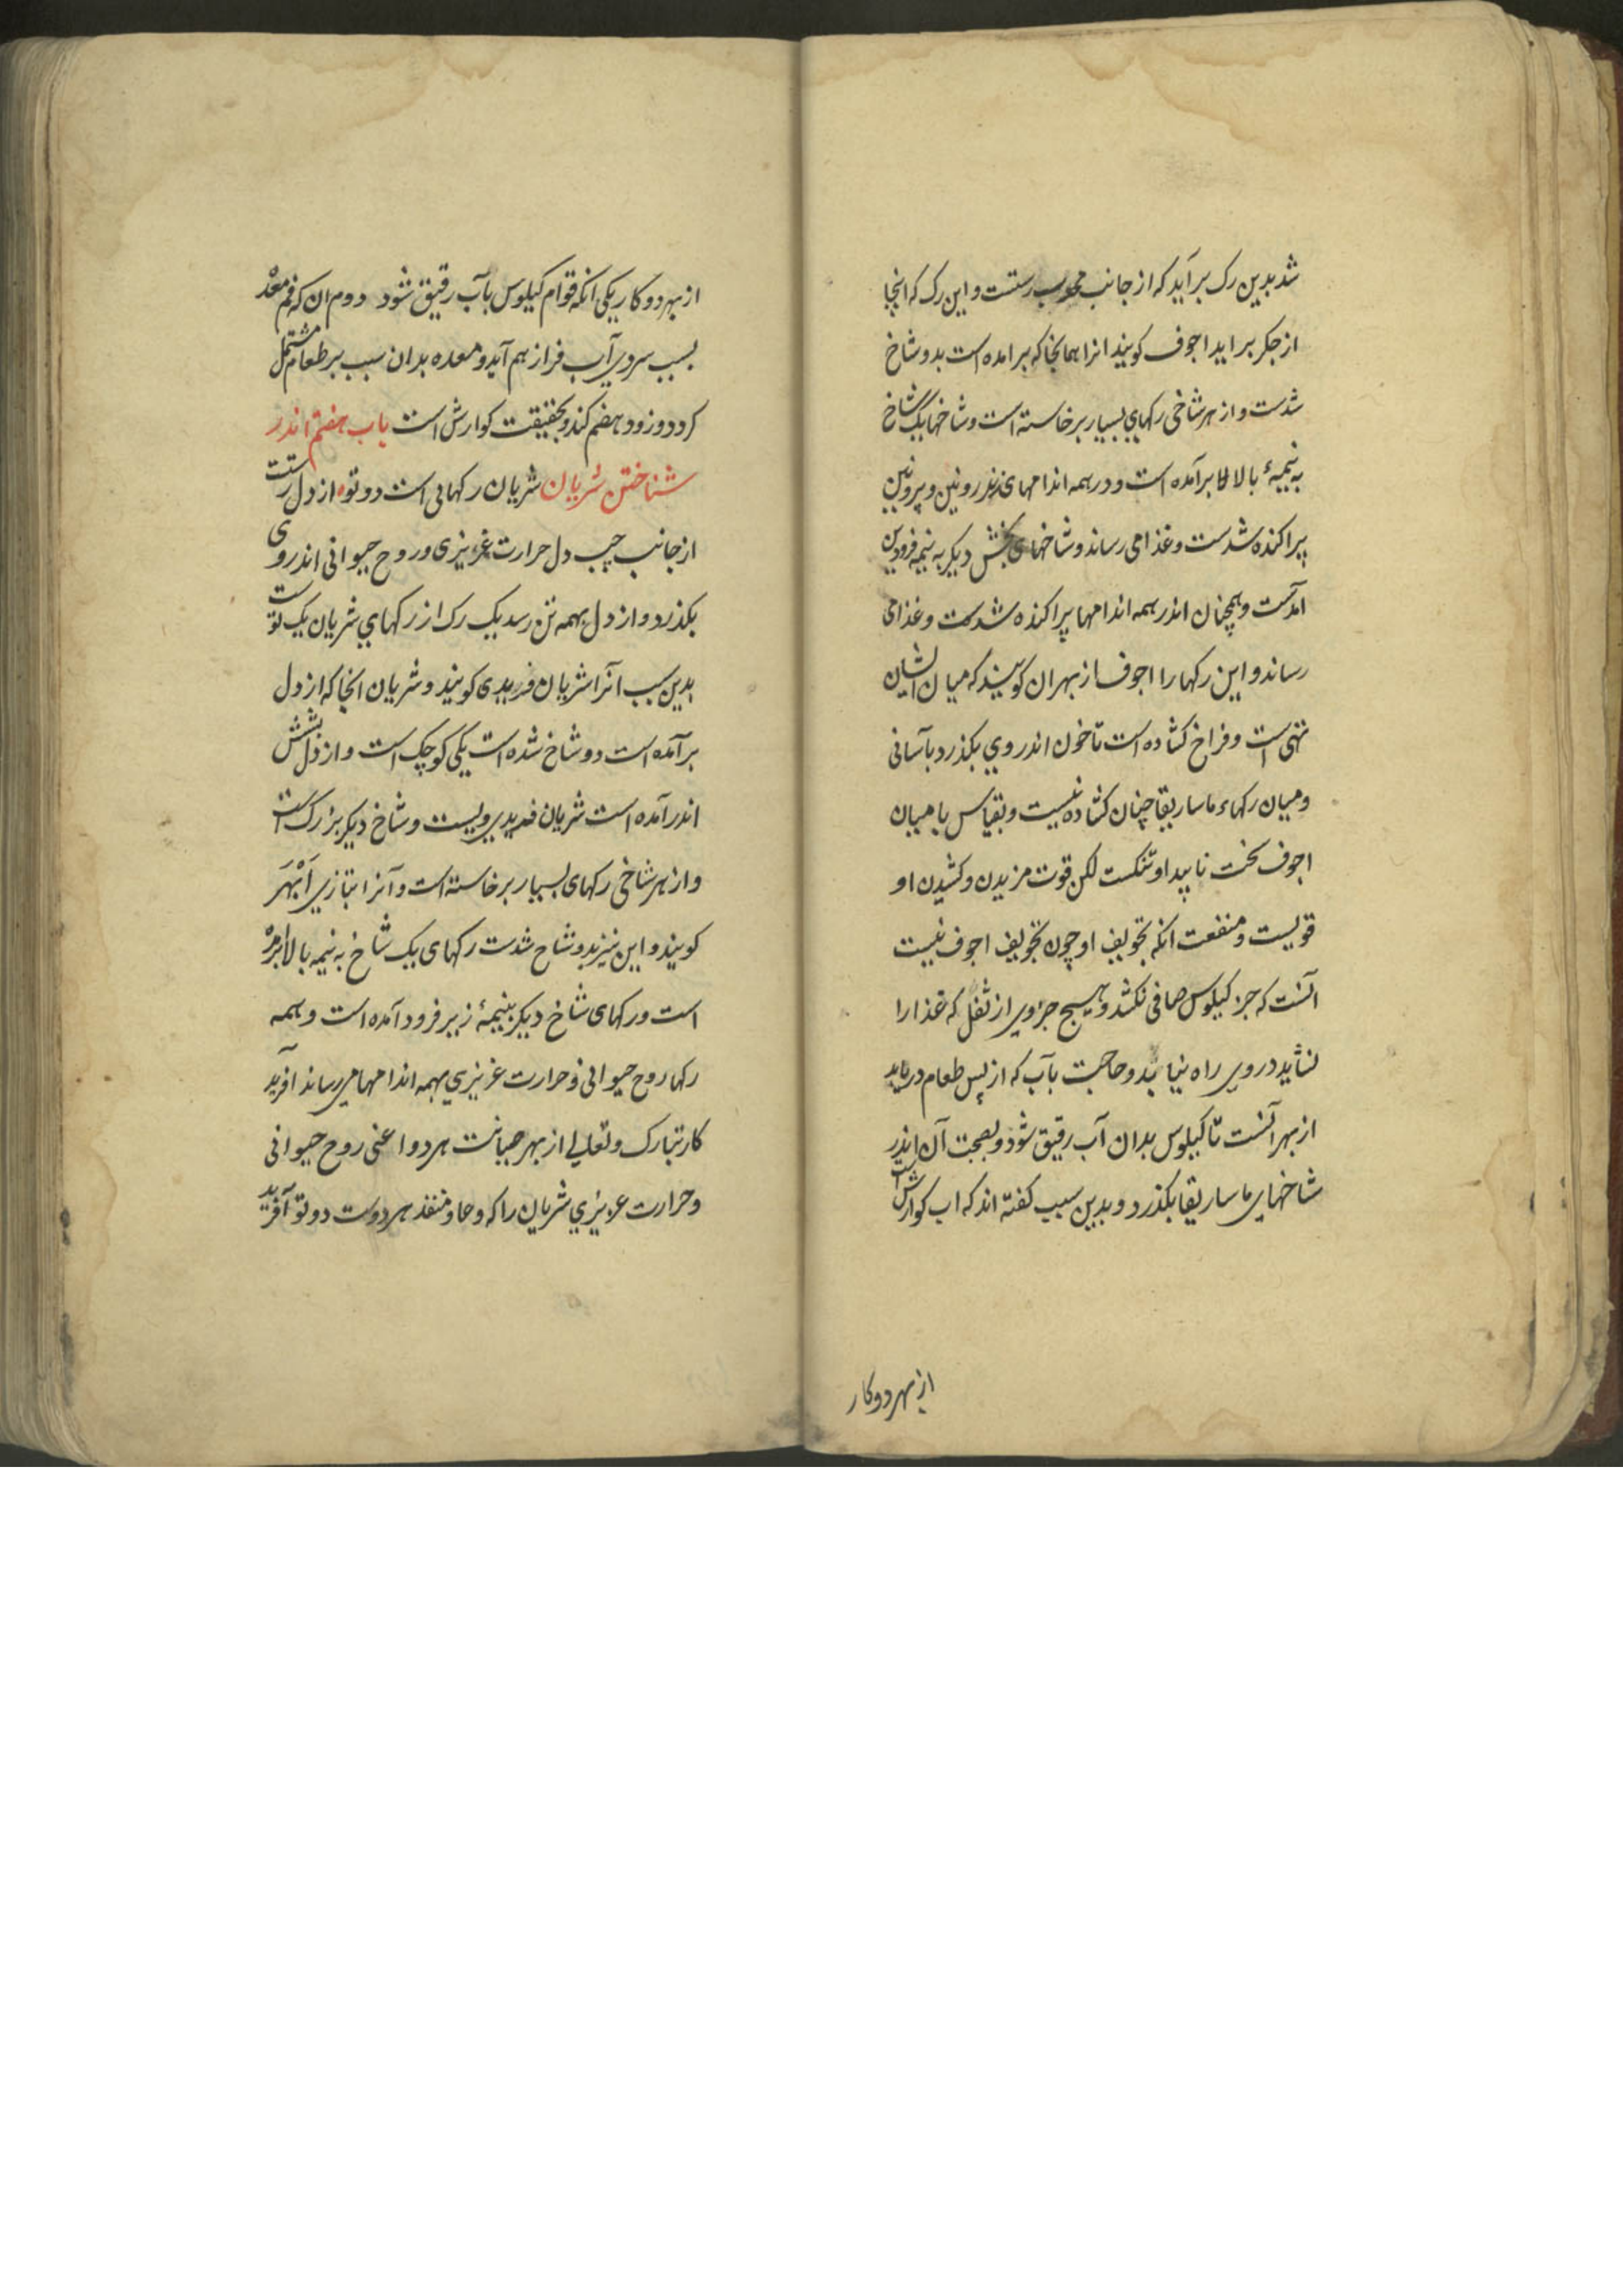 شد بدین رک برآید که از جانب محدب رستست و این رک که انجا
از جکر براید اجوف کویند انرا همانجا که برامده است بدو شاخ
شدست و از هر شاخی رکهای بسیار برخاسته است و شاخهای یک شاخ
به نیمهٔ بالا برآمده است و در همه اندامهای اندرونین و بیرونین
پراکنده شدست و غذا می رساند و شاخهای بخش دیکر به نیمه فرودین
امدست و همچنان اندر همه اندامها پراکنده شدست و غذا می
رساند و این رکها را اجوف از بهر ان کویند که میان ایشان
تهی است و فراخ کشاده است تا خون اندر وی بکذرد بآسانی
و میان رکهاء ماساریقا چنان کشاده نیست و بقیاس با میان
اجوف سخت ناپیدا و تنکست لکن قوت مزیدن و کشیدن او
قویست و منفعت انکه تجویف او چون تجویف اجوف نیست
انست که جز کیلوس صافی نکشد و هیچ جزوی از ثفل که غذا را
نشاید در وی راه نیابد و حاجت بآب که از پس طعام دربابد
از بهر آنست تا کیلوس بدان آب رقیق شود و بصحبت آن اندر
شاخهای ماساریقا بکذرد و بدین سبب کفته اند که اب کوارش است
از بهر دو کار
از بهر دو کار یکی انکه قوام کیلوس بآب رقیق شود دوم ان که فم معده
بسبب سردی آب فراز هم آید و معده بدان سبب بر طعام مشتمل
کردد و زود هضم کند و بحقیقت کوارش است باب هفتم اندر
شناختن شریان شریان رکهائی است دو تو از دل رستست
از جانب چپ دل حرارت غریزی و روح حیوانی اندر وی
بکذرد و از دل بهمه تن رسد یک رک از رکهای شریان یک توست
بدین سبب آنرا شریان وریدی کویند و شریان انجا که از دل
برآمده است دو شاخ شده است یکی کوچک است و از دل بشش
اندر آمده است شریان وریدی ویست و شاخ دیکر بزرک است
و از هر شاخی رکهای بسیار برخاسته است و آنرا بتازی اَبْهَر
کویند و این نیز بدو شاخ شدست رکهای یک شاخ به نیمه بالا برامده
است و رکهای شاخ دیکر بنیمهٔ زیر فرود آمده است و همه
رکها روح حیوانی و حرارت غریزی بهمه اندامها می رساند آفرید
کار تبارک و تعالی از بهر صیانت هر دو اعنی روح حیوانی
و حرارت غریزی شریان را که وعا و منفذ هر دوست دو تو آفرید